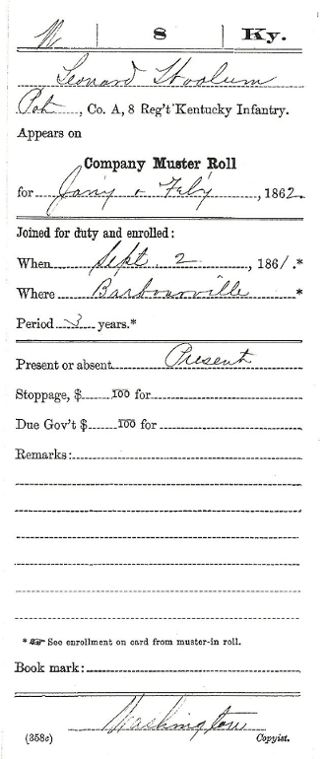 W | 8 | Ky.
Leonard Woolum
Pvt, Co. A, 8 Reg't Kentucky Infantry.
Appears on
Company Muster Roll
for Jan'y & Feb'y, 1862.
Joined for duty and enrolled:
When Sept. 2, 1861.*
Where Barbourville *
Period 3 years.*
Present or absent Present
Stoppage, $ 100 for
Due Gov't $ 100 for
Remarks:
* ☞ See enrollment on card from muster-in roll.
Book mark:
Washington
(358c) Copyist.